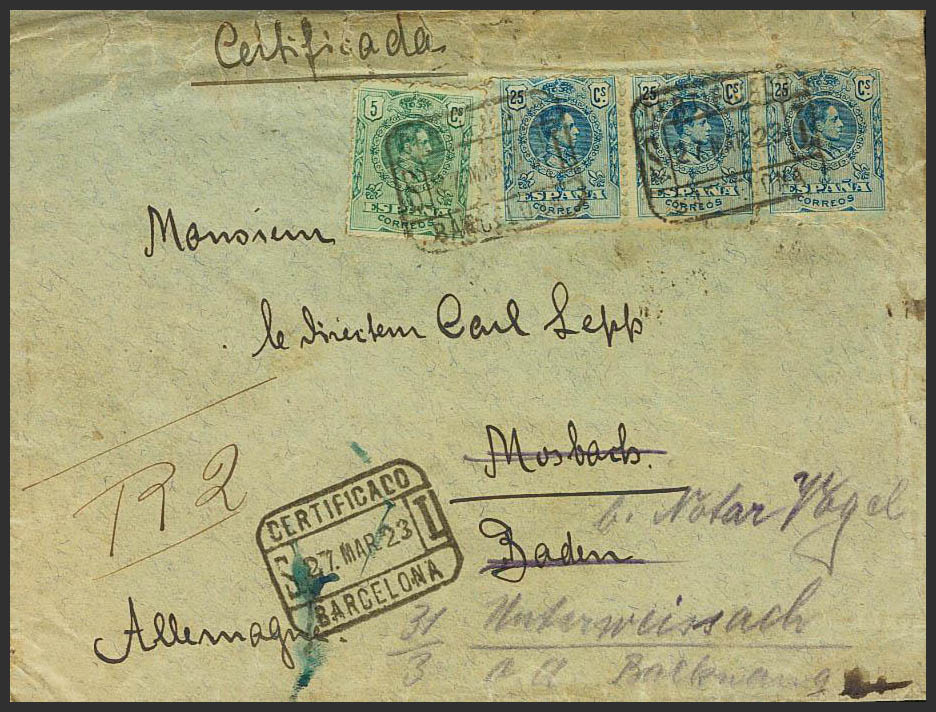 Certificada
5 Cs 25 Cs 25 Cs 25 Cs
ESPAÑA ESPAÑA ESPAÑA ESPAÑA
CORREOS CORREOS CORREOS CORREOS
BARCELONA
Monsieur
le directeur Carl Lepp
R 2
Mosbach.
b. Notar Vogel
CERTIFICADO
27.MAR.23 I
BARCELONA
Baden
Allemagne.
31/3 Unterweissach
o a Backnang